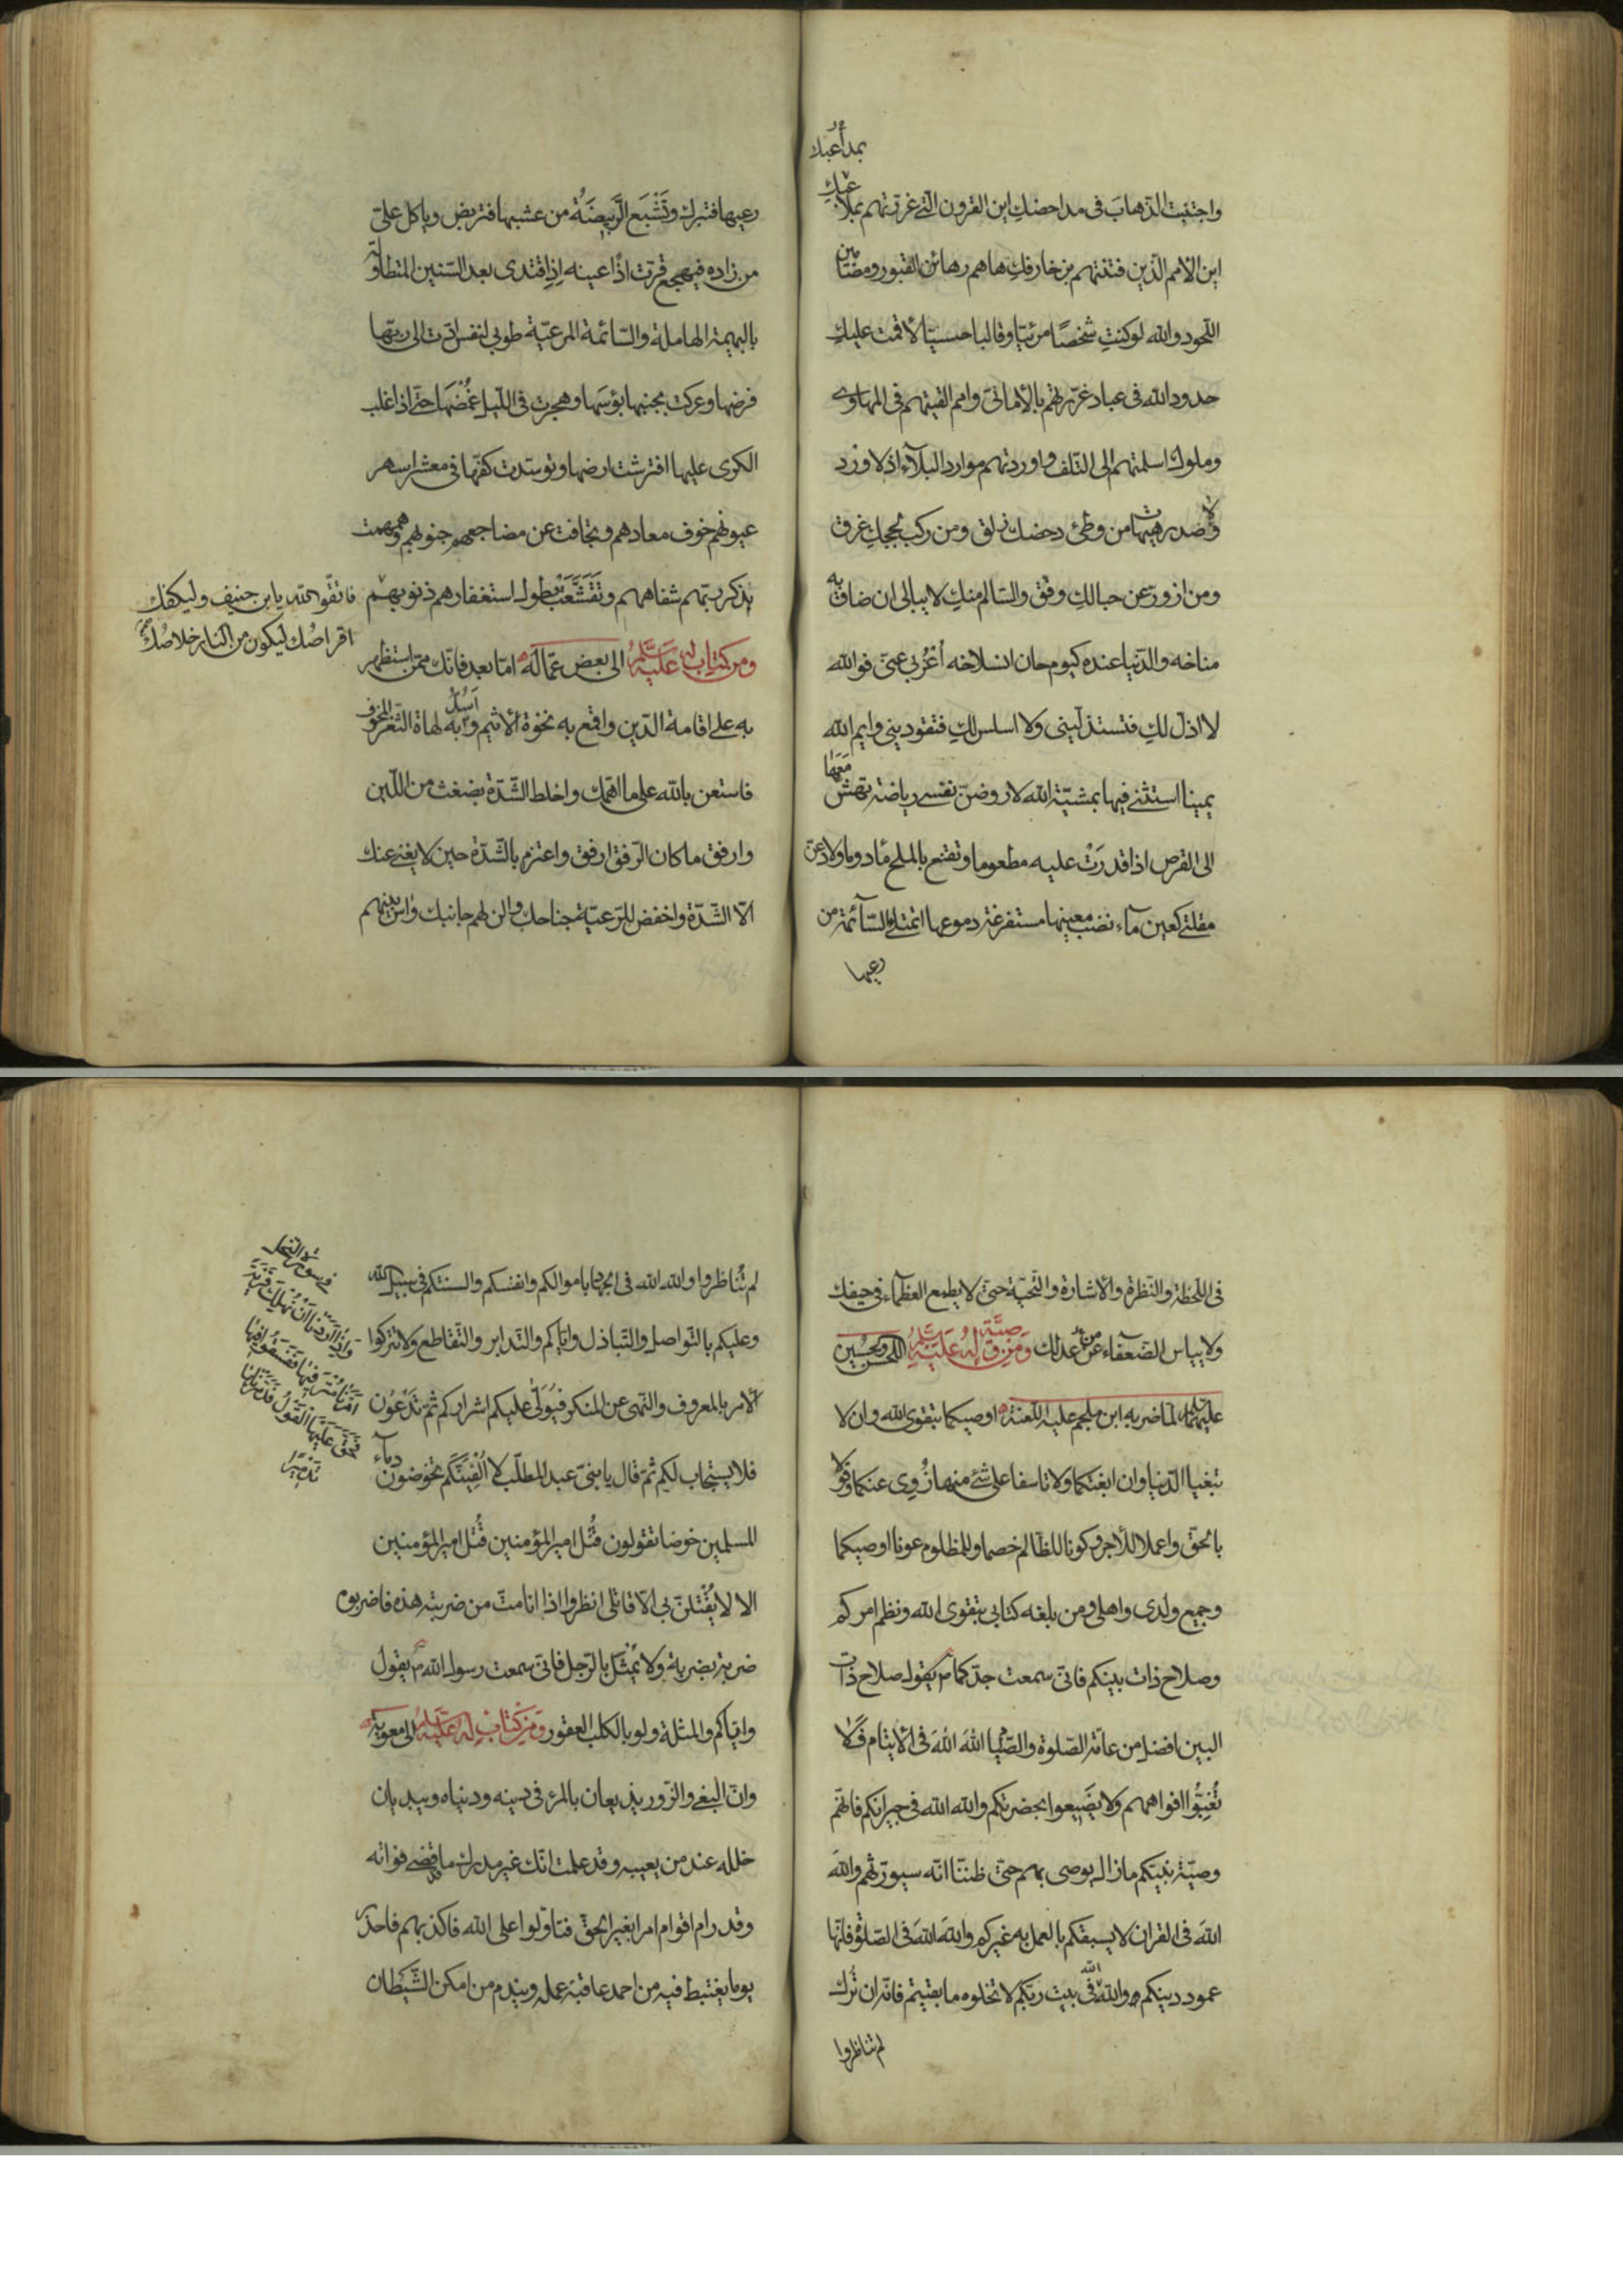 بمداعبك
واجتنبت الذهاب فى مداحضكِ اين القرون الّتى غررتهم بملاعبكِ
اين الامم الّذين فتنتهم بزخارفكِ ها هم رهائن القبور ومضامين
اللّحود والله لو كنتِ شخصًا مرئيّا وقالبا حسيّا لأقمت عليكِ
حدود الله فى عباد غررتهم بالأمانى وامم القيتهم فى المهاوى
وملوك اسلمتهم الى التلف واوردتهم موارد البلآء اذ لا ورد
ولا صدر هيهات من وطئ دحضك زلق ومن ركب لججكِ غرق
ومن ازورّ عن حبالكِ وفّق والسّالم منكِ لا يبالى ان ضاق به
مناخه والدّنيا عنده كيوم حان انسلاخه أعزبى عنّى فوالله
لا اذلّ لكِ فتستذلّينى ولا اسلس لكِ فتقودينى وايم الله
يمينا استثنى فيها بمشيّة الله لاروضنّ نفسى رياضة تهشّ معها
الى القرص اذا قدرت عليه مطعوما وتقنع بالملح مأدوما ولادعنّ
مقلتى كعين مآء نضب معينها مستفرغة دموعها اتمتلئ السّآئمة من
رعيها
رعيها فتبرك وتَشْبَع الرَّبيضَةُ من عشبها فتربض وياكل علىّ
من زاده فيهجع قرّت اذًا عينه اذِ اقتدى بعد السّنين المتطاولة
بالبهيمة الهاملة والسّائمة المرعيّة طوبى لنفس ادّت الى ربّها
فرضها وعركت بجنبها بؤسَها وهجرت فى اللّيل غُمْضَها حتّى اذا غلب
الكرى عليها افترشت ارضها وتوسّدت كفّها فى معشر اسهر
عيونهم خوف معادهم وتجافت عن مضاجعهم جنوبهم وهمهمت
بذكر ربّهم شفاههم وتَقَشَّعَتْ بطول استغفارهم ذنوبهم
فاتّقوا الله يا بن حنيف وليكفك
اقراصُك ليكون من النار خلاصُك
ومن كتاب له عليه السلم الى بعض عمّاله امّا بعد فانّك ممّن استظهر
به على اقامة الدّين واقمع به نخوة الأثيم واسدّ به لهاة الثّغر المخوف
فاستعن بالله على ما اهمّك واخلط الشّدّة بضغث من اللّين
وارفق ما كان الرّفق ارفق واعتزم بالشّدّة حين لا يغنى عنك
الّا الشّدّة واخفض للرّعيّة جناحك والن لهم جانبك وآس بينهم
فى اللّحظة والنّظرة والأشارة والتّحيّة حتى لا يطمع العظمآء فى حيفك
ولا يياس الضّعفآء من عدلك ومن وصيّة له عليه السلم للحسن والحسين
عليهما السلم لمّا ضربه ابن ملجم عليه اللّعنة اوصيكما بتقوى الله وان لا
تبغيا الدّنيا وان ابغتكما ولا تاسفا على شئ منها زُوِى عنكما وقولا
بالحقّ واعملا للأجر وكونا للظّالم خصما وللمظلوم عونا اوصيكما
وجميع ولدى واهلى ومن بلغه كتابى بتقوى الله ونظم امركم
وصلاح ذات بينكم فانّى سمعت جدّكما يقول صلاح ذات
البين افضل من عامّة الصّلوة والصّيام اللهَ اللهَ فى الأيتام فلا
تُغِبُّوا افواههم ولا يضيعوا بحضرتكم والله الله فى جيرانكم فانّهم
وصيّة نبيّكم ما زال يوصى بهم حتّى ظننّا انّه سيورّثهم واللهَ
اللهَ فى القران لا يسبقكم بالعمل به غيركم واللهَ اللهَ فى الصّلوة فانّها
عمود دينكم والله الله فى بيت ربّكم لا تخلوه ما بقيتم فانّه ان تُرك
لم تناظروا
لم تُناظروا والله الله فى الجهاد باموالكم وانفسكم والسنتكم فى سبيل الله
وعليكم بالتّواصل والتّباذل وايّاكم والتّدابر والتّقاطع ولا تتركوا
الأمر بالمعروف والنّهى عن المنكر فيُوَلّى عليكم اشراركم ثمّ تدْعُون
فلا يستجاب لكم ثمّ قال يا بنى عبد المطّلب لا اُلْفِيَنَّكم تخوضون دمآء
المسلمين خوضا تقولون قُتل امير المؤمنين قُتل امير المؤمنين
الا لا يُقْتَلنّ بى الّا قاتلى انظروا اذا انا متّ من ضربته هذه فاضربوه
ضربة بضربة ولا يُمثّل بالرّجل فانّى سمعت رسول الله يقول
وايّاكم والمثلة ولو بالكلب العقور ومن كتاب له عليه السلم الى معوية
وانّ البغى والزّور يذيعان بالمرء فى دينه ودنياه ويبديان
خلله عند من يعيبه وقد علمت انّك غير مدرك ما قضى فواته
وقد رام اقوام امرا بغير الحقّ فتاوّلوا على الله فاكذبهم فاحذر
يوما يغتبط فيه من احمد عاقبة عمله ويندم من امكن الشّيطان
فى سورة النحل
وَاِذا اَرَدْنا اَنْ نُهْلِكَ قَرْيَةً
اَمَرْنا مُتْرَفيها فَفَسَقُوا فيها
فَحَقَّ عَلَيْهَا القَوْلُ فَدَمَّرْناها
تَدْميرًا